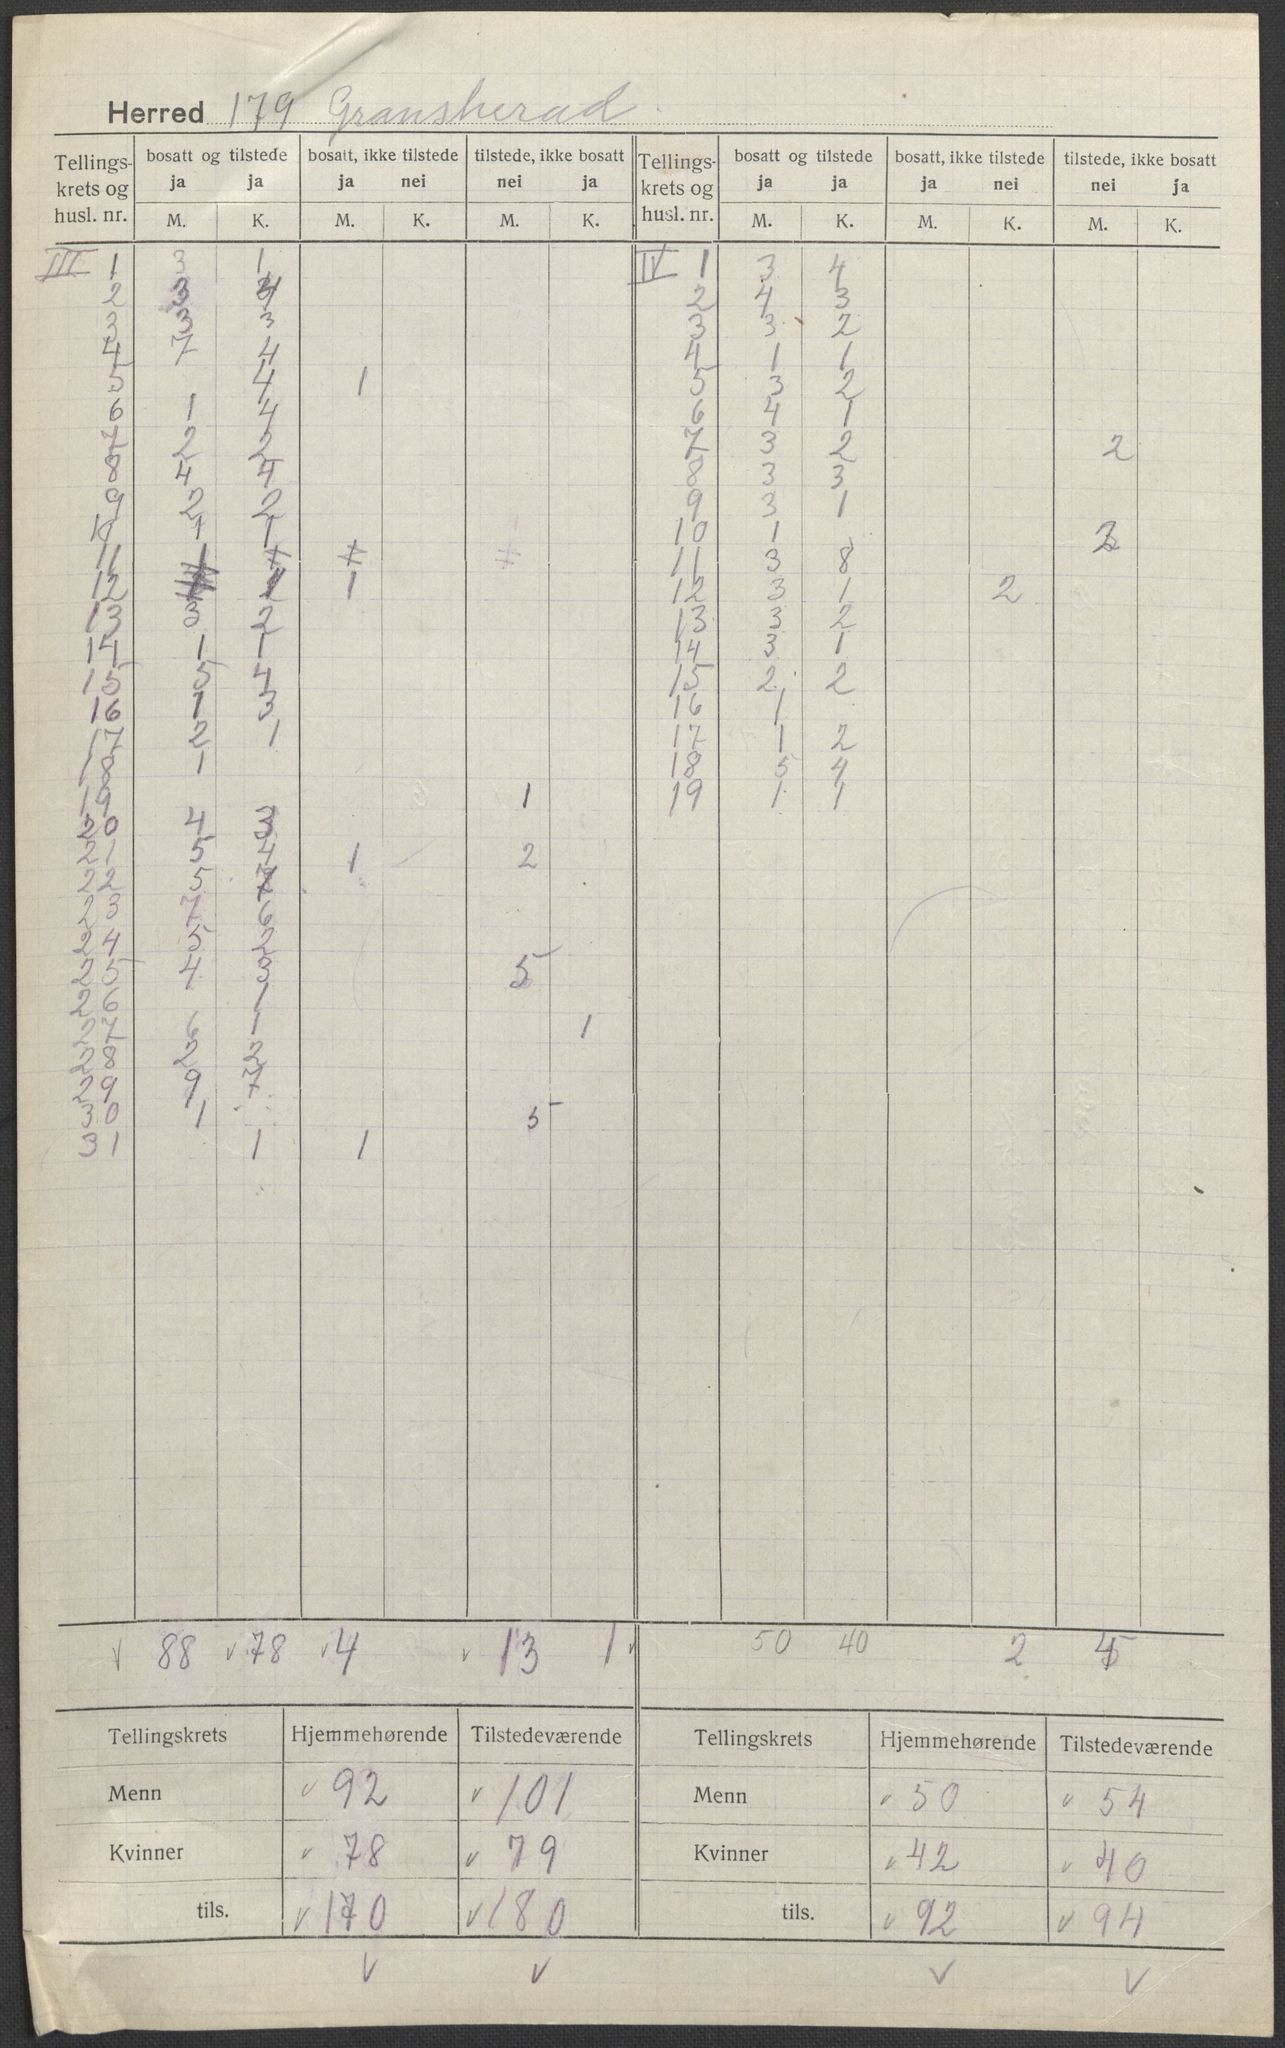 Herred 179 Gransherad
Tellings-krets og husl. nr. | bosatt og tilstede ja ja | bosatt, ikke tilstede ja nei | tilstede, ikke bosatt nei ja | Tellings-krets og husl. nr. | bosatt og tilstede ja ja | bosatt, ikke tilstede ja nei | tilstede, ikke bosatt nei ja
M. K. M. K. M. K. M. K. M. K. M. K.
III 1 3 1 | IV 1 3 4
2 3 | 2 4 3
3 3 3 | 3 3 2
4 7 4 | 4 1 1
5 4 1 | 5 3 2
6 1 4 | 6 4 1
7 2 2 | 7 3 2 2
8 4 4 | 8 3 3
9 2 2 | 9 3 1
10 1 1 | 10 1
11 1 | 11 3 8
12 1 1 | 12 3 1 2
13 3 2 | 13 3 2
14 1 1 | 14 3 1
15 5 4 | 15 2 2
16 1 3 | 16 1
17 2 1 | 17 1 2
18 1 | 18 5 4
19 1 | 19 1 1
20 4 3
21 5 4 1 2
22 5
23 7 6
24 5 2
25 4 3 5
26 1
27 6 1 1
28 2 2
29 9 7
30 1 5
31 1 1
88 78 4 13 1 | 50 40 2
Tellingskrets Hjemmehørende Tilstedeværende | Tellingskrets Hjemmehørende Tilstedeværende
Menn 92 101 | Menn 50 54
Kvinner 78 79 | Kvinner 42 40
tils. 170 180 | tils. 92 94